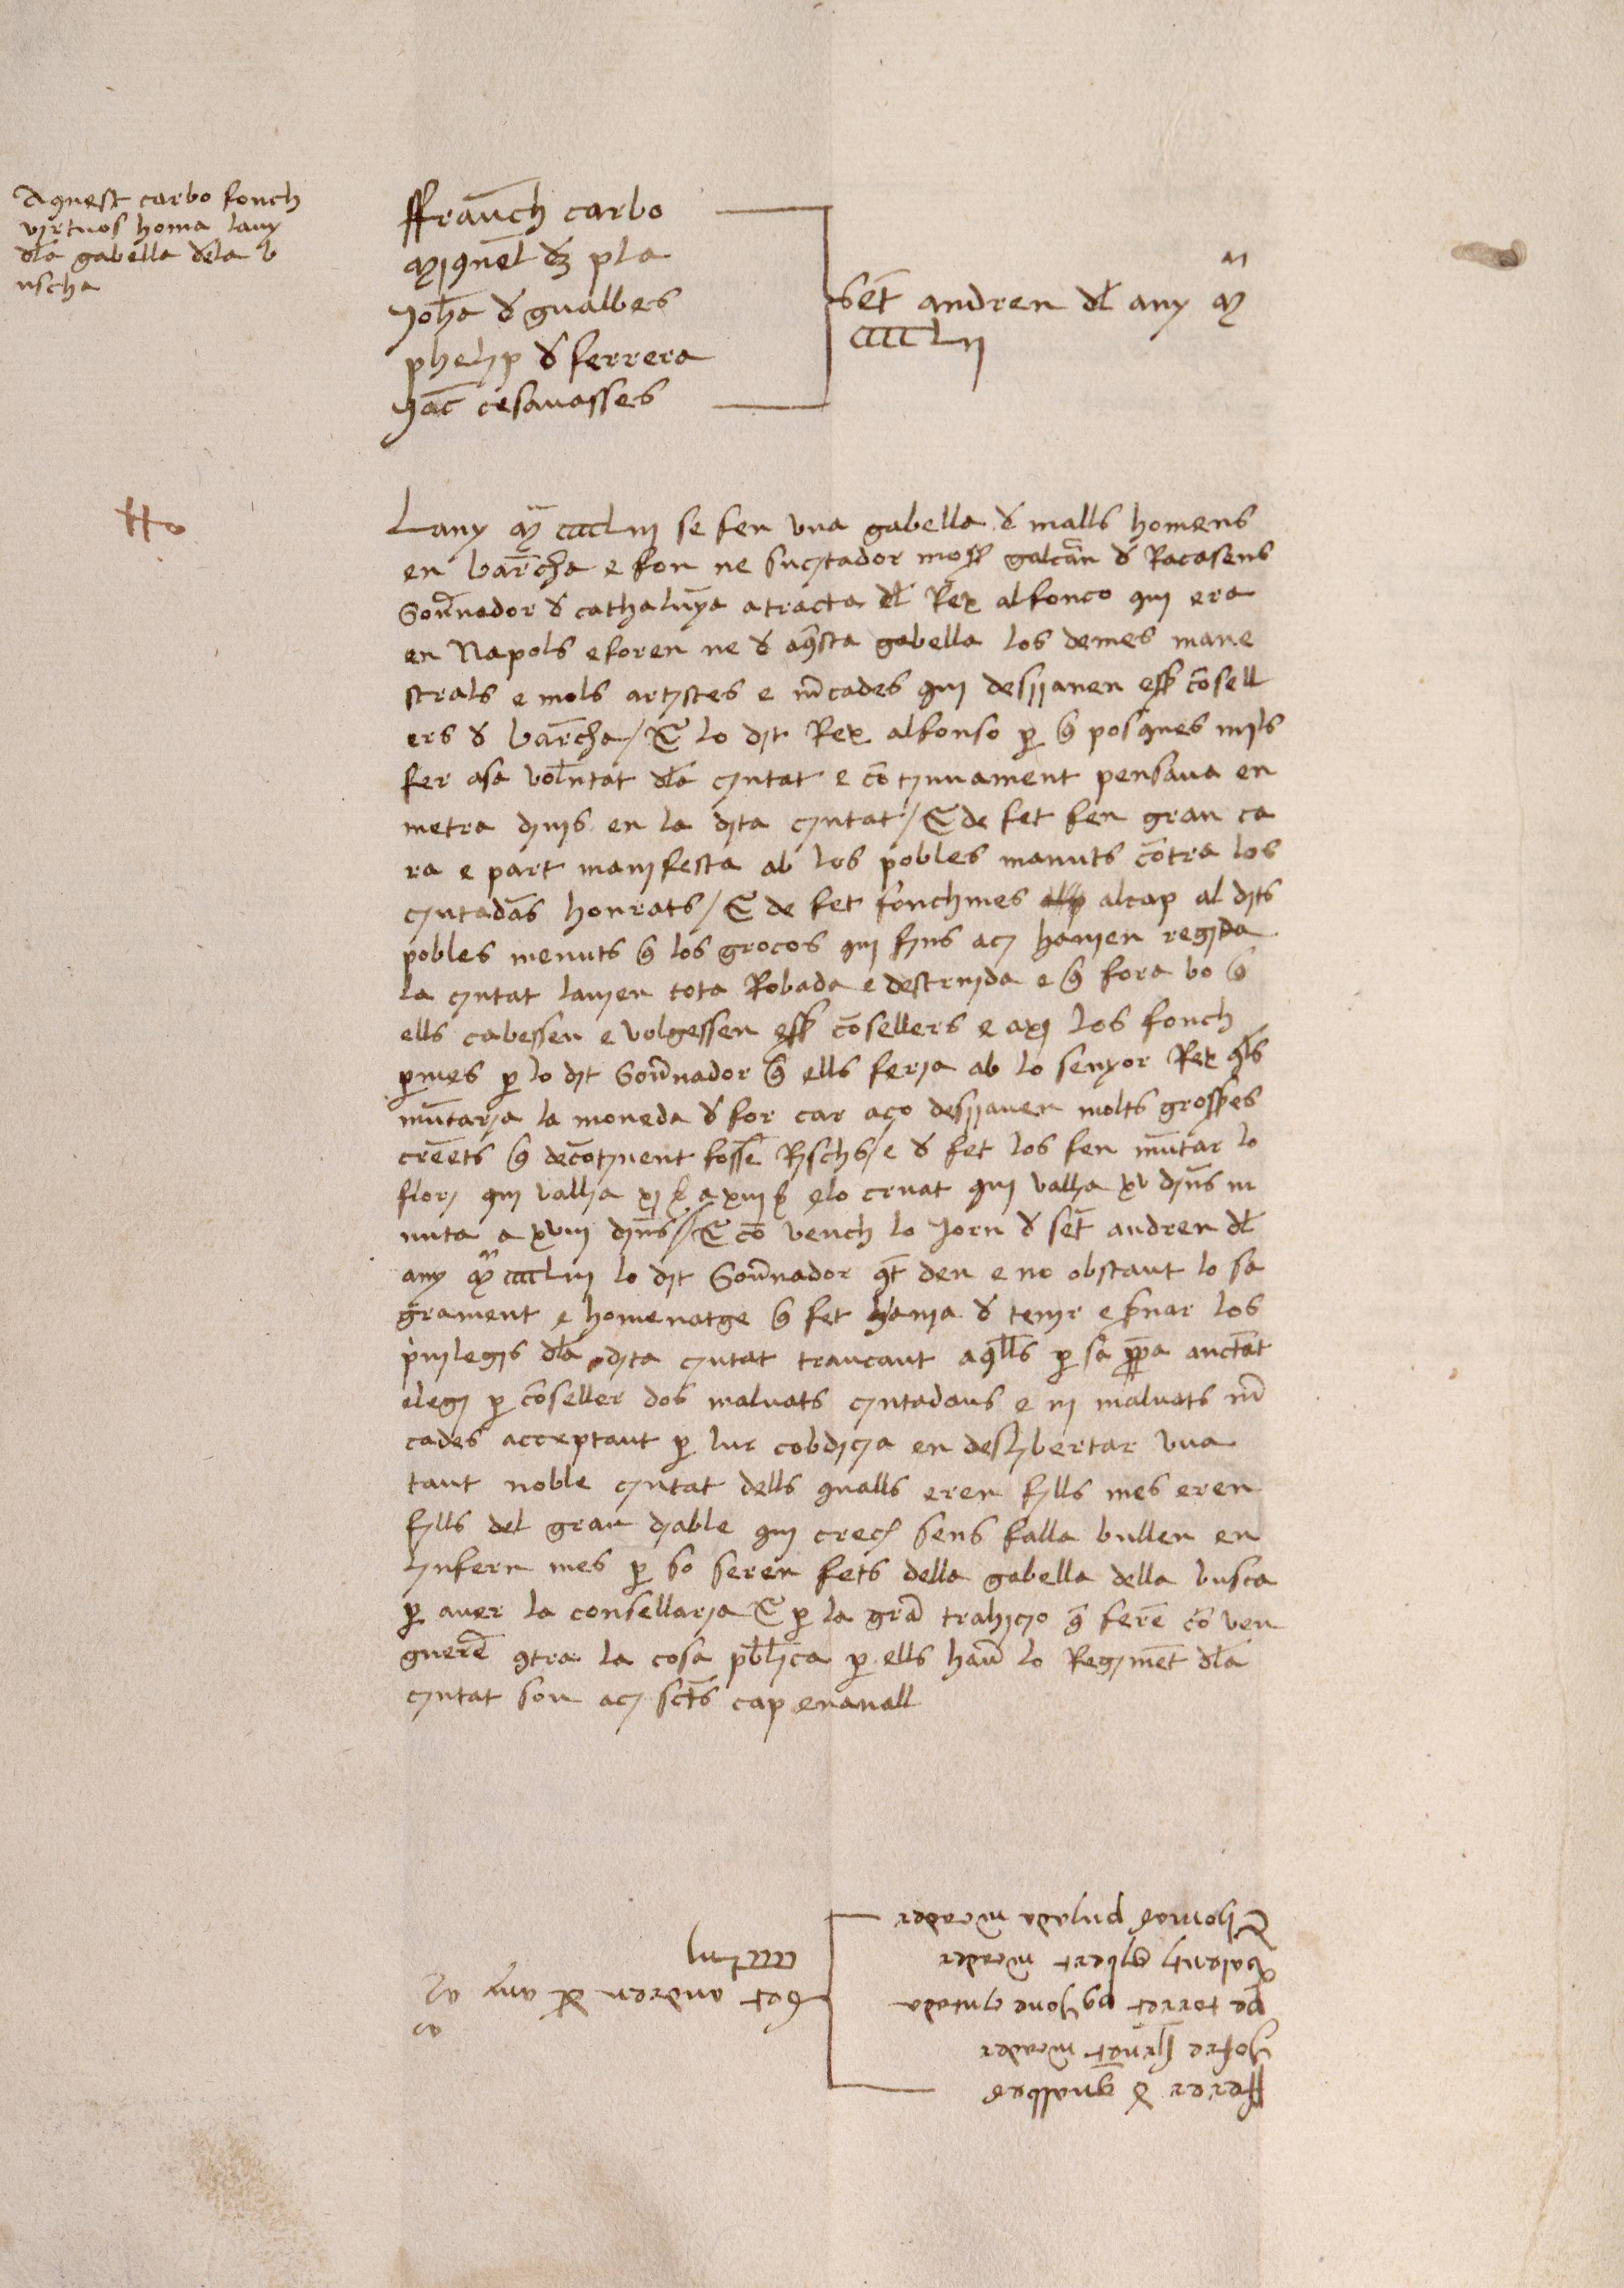 Aquest carbo fonch
virtuos homa lany
dla gabella dela b
uscha
ffranch carbo
Miquel de pla
Joha d gualbes
phelip d ferrera
Jac cesavasses
Set andreu dl any M
CCCCLII
Lany M CCCCLIII se feu vna gabella d malls homens
en barcha e fon ne sucitador moss galcran d Racasens
Gounador d cathalunya a tracta dl Rey alfonco qui era
en Napols e foren ne d aqsta gabella los demes mane
strals e mols artistes e mcades qui desijauen ess cosell
ers d barcha / E lo dit Rey alfonso p q posques mils
fer asa voluntat dla ciutat e cotinuament pensaua en
metra diuis en la dita ciutat / E de fet feu gran ca
ra e part manifesta ab los pobles manuts contra los
ciutadas honrats / E de fet fonch mes alcap al dits
pobles menuts q los grocos qui fins aci hauien regida
la ciutat lauien tota Robada e destruida e q fora bo q
ells cabessen e volgessen ess cosellers e axi los fonch
pmes p lo dit Gounador q ells feria ab lo senyor Rey qls
muntaria la moneda d for car aço desijauen molts grosses
creets q decotinent fosse Richs / e d fet los feu muntar lo
flori qui vallia xi ß a xiii ß elo cruat qui vallia xv dins m
unta a xviii dins // E co vench lo Jorn d set andreu dl
any M CCCCLIII lo dit Gounador qt deu e no obstant lo sa
grament e homenatge q fet hauia d tenir e sruar los
priuilegis dla dita ciutat trancant aqlls p sa ppa auctat
elegi p coseller dos maluats ciutadans e iii maluats m
cades acceptant p lur cobdicia en deslibertar vna
tant noble ciutat dells qualls eren fills mes eren
fills del gran diable qui crech sens falla bullen en
linfern mes p so seren fets della gabella della busca
p auer la consellaria E p la gra trahicio q fere co ven
guere qtra la cosa publica p ells hau lo Regimet dla
ciutat son aci scts cap enauall
fferrer d gualbes
Jofre siruet mcader
pe torret ciutada
Valenti gibert mcader
Thomas puiada mcader
Set andreu dl any M
CCCCLIII